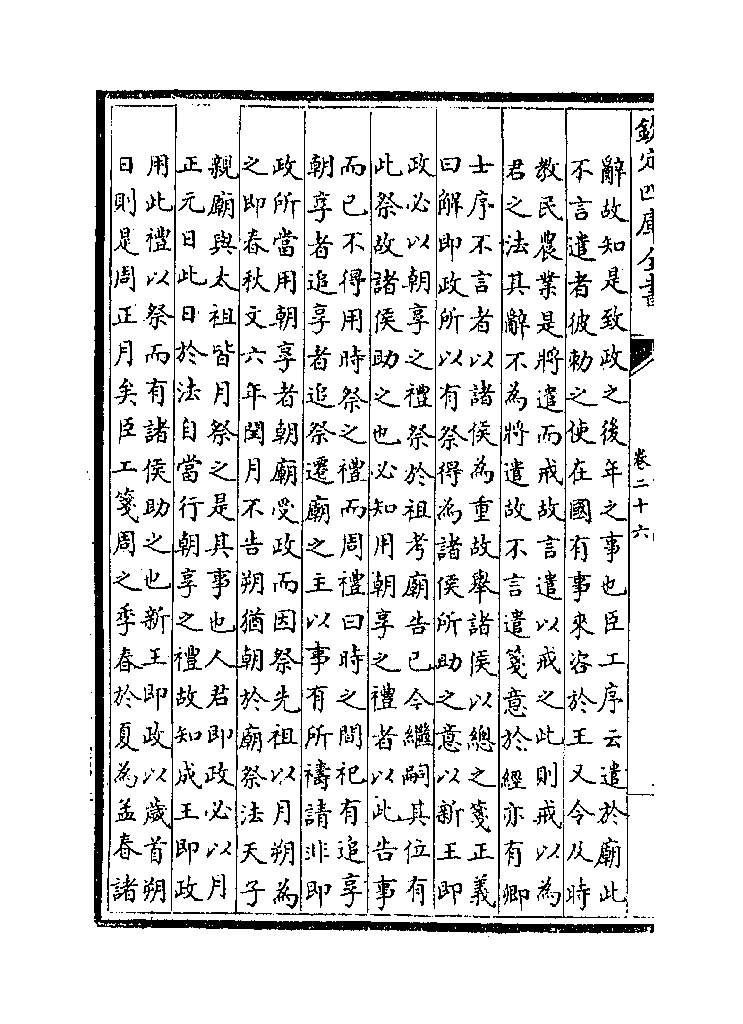 欽定四庫全書
卷二十六
辭故知是致政之後年之事也臣工序云遣於廟此
不言遣者彼勅之使在國有事來咨於王又令及時
教民農業是將遣而戒故言遣以戒之此則戒以為
君之法其辭不為將遣故不言遣箋意於經亦有卿
士序不言者以諸侯為重故舉諸侯以總之箋正義
曰解即政所以有祭得為諸侯所助之意以新王即
政必以朝享之禮祭於祖考廟告已今繼嗣其位有
此祭故諸侯助之也必知用朝享之禮者以此告事
而已不得用時祭之禮而周禮曰時之間祀有追享
朝享者追享者追祭遷廟之主以事有所禱請非即
政所當用朝享者朝廟受政而因祭先祖以月朔為
之即春秋文六年閏月不告朔猶朝於廟祭法天子
親廟與太祖皆月祭之是其事也人君即政必以月
正元日此日於法自當行朝享之禮故知成王即政
用此禮以祭而有諸侯助之也新王即政以歲首朔
日則是周正月矣臣工箋周之季春於夏為孟春諸